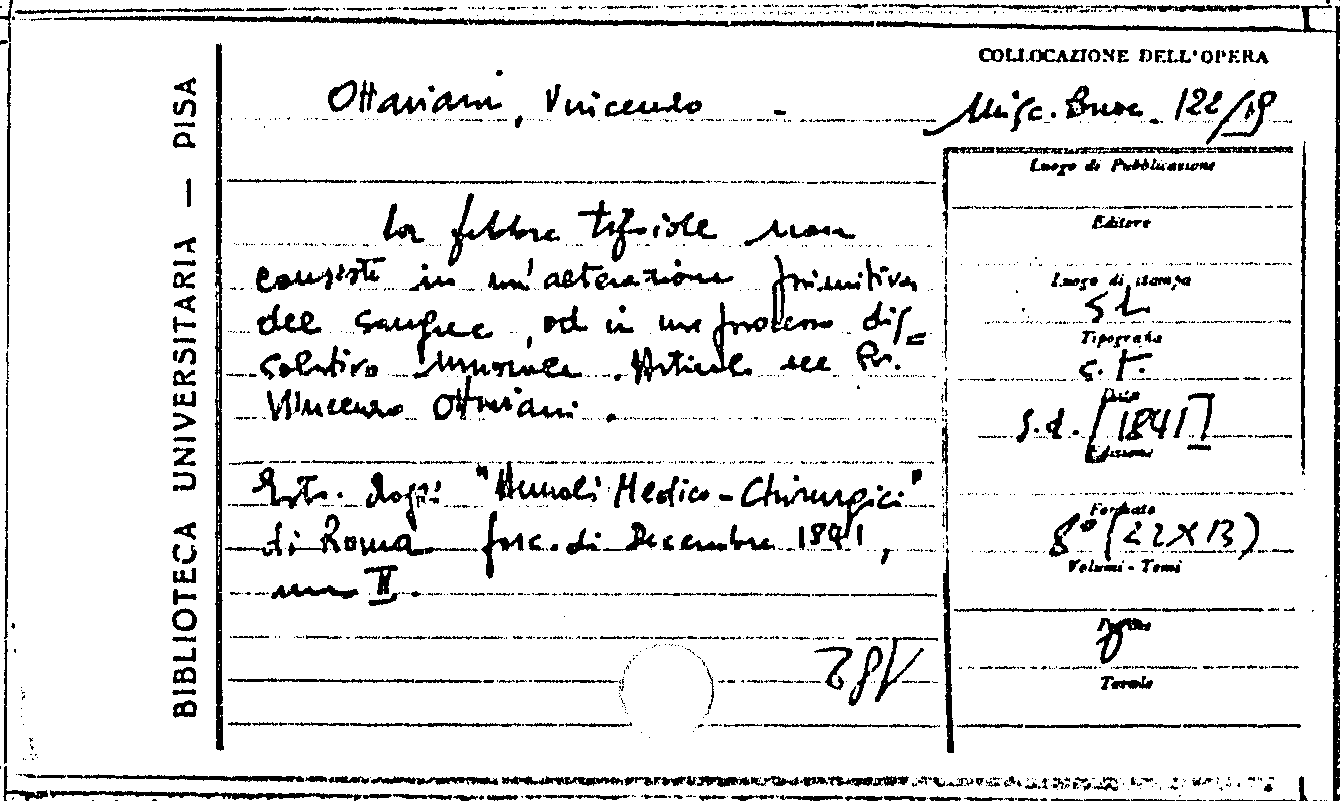 BIBLIOTECA UNIVERSITARIA — PISA
COLLOCAZIONE DELL'OPERA
Ottaviani, Vincenzo -
Misc. Breve. 122/19
La febbre tifoide non
consiste in un'alterazione primitiva
del sangue, od in un processo dis=
solutivo umorale. Articolo del Dr.
Vincenzo Ottaviani.
Estr. dagli "Annali Medico-Chirurgici"
di Roma fasc. di Decembre 1841,
anno II.
Luogo di Pubblicazione
Editore
Luogo di stampa
S.L.
Tipografia
s.t.
Data
s.d. [1841]
Edizione
Formato
8° (22X13)
Volumi - Tomi
Pagine
8
Tavole